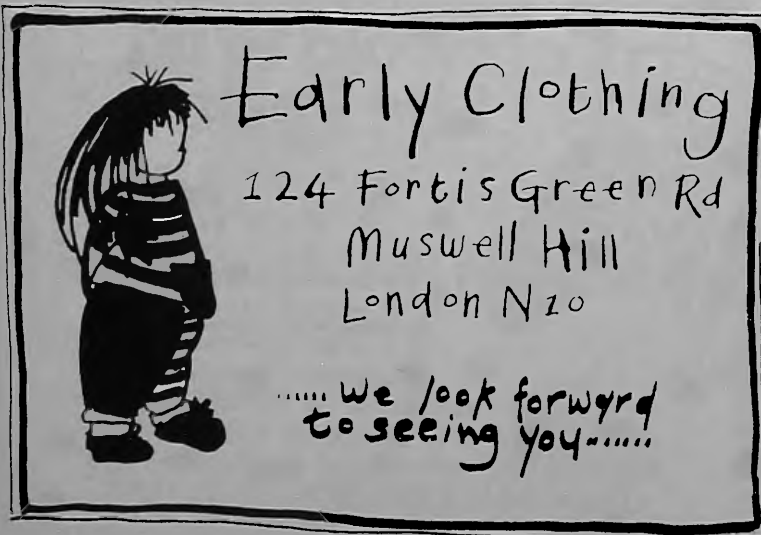 Early Clothing
124 Fortis Green Rd
Muswell Hill
London N10
...... We look forward
to seeing you.......